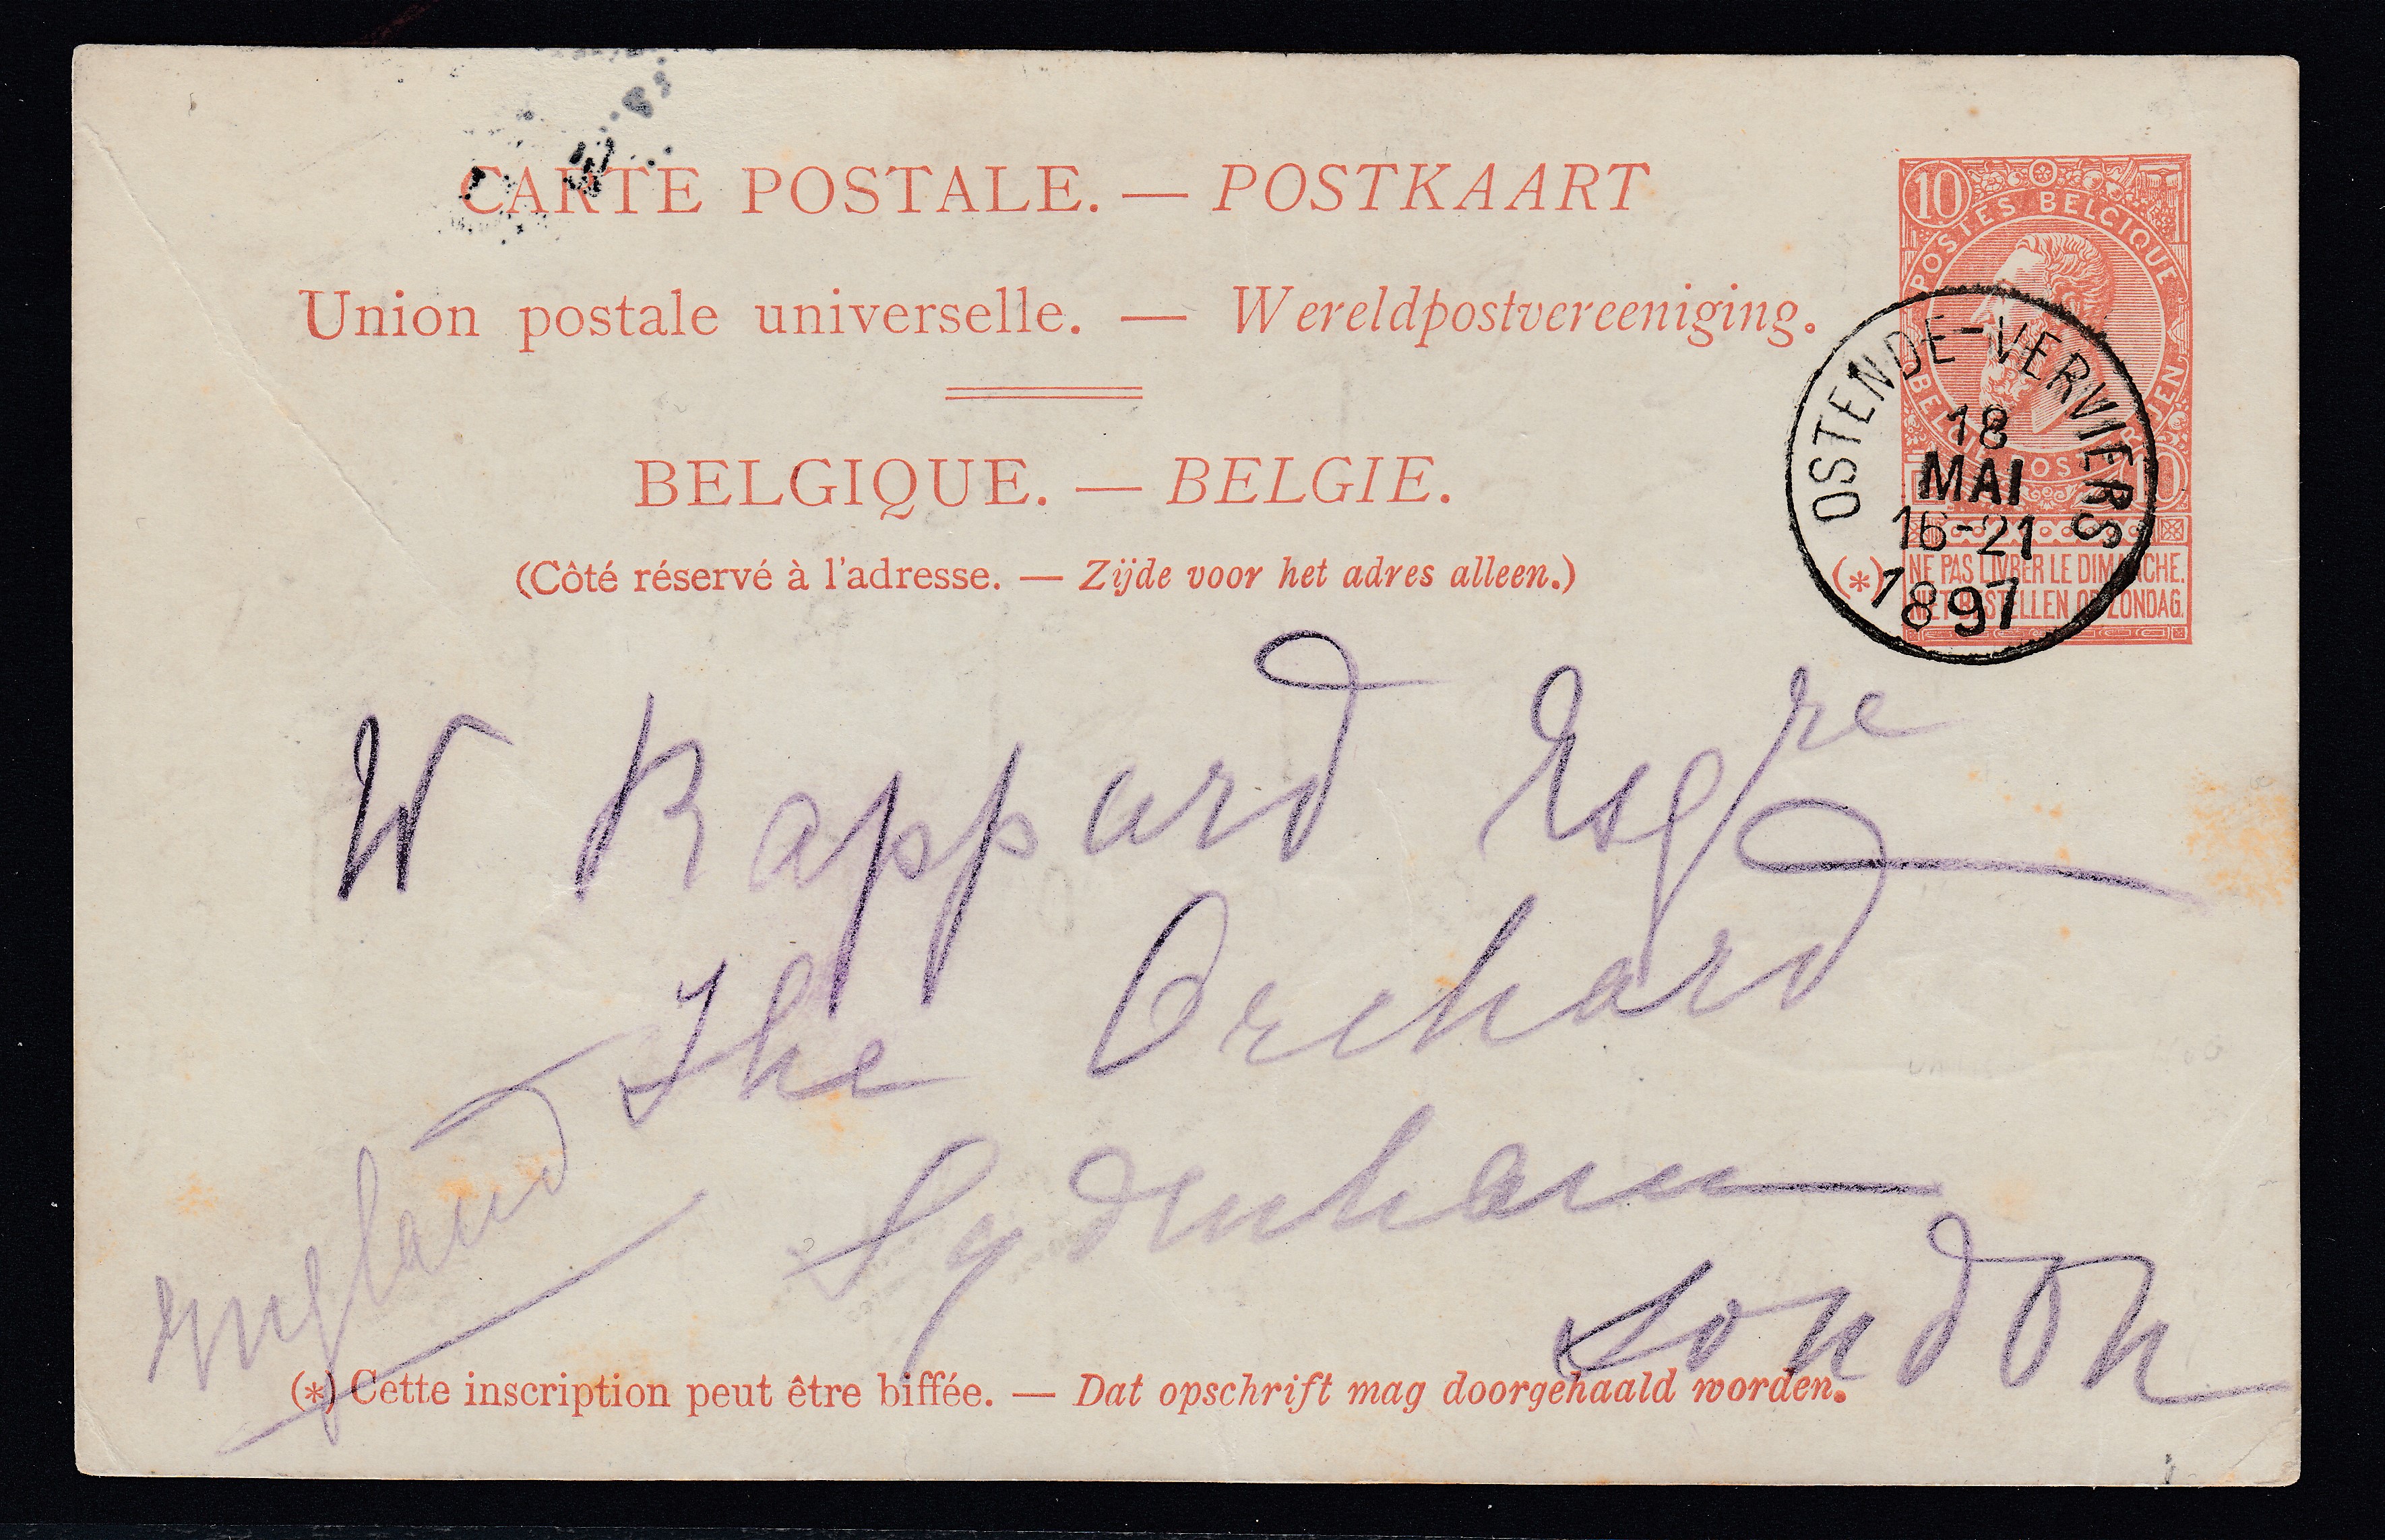 CARTE POSTALE. — POSTKAART
Union postale universelle. — Wereldpostvereeniging.
BELGIQUE. — BELGIE.
(Côté réservé à l'adresse. — Zijde voor het adres alleen.)
10
POSTES BELGIQUE
10
(*) NE PAS LIVRER LE DIMANCHE.
NIET BESTELLEN OP ZONDAG.
OSTENDE-VERVIERS
18
MAI
16-21
1897
W Rappard Esqre
The Orchard
Sydenham
London
England
(*) Cette inscription peut être biffée. — Dat opschrift mag doorgehaald worden.